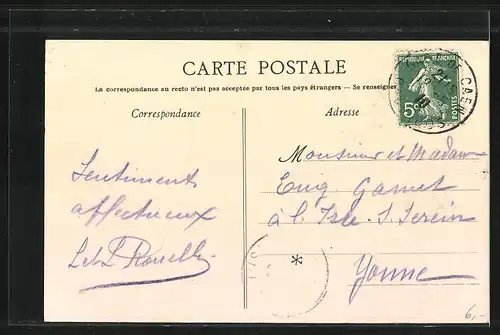 CARTE POSTALE
La correspondance au recto n'est pas acceptée par tous les pays étrangers — Se renseigner
Correspondance
Adresse
RÉPUBLIQUE FRANÇAISE
5c
POSTES
CAEN
Sentiments
affectueux
Monsieur et Madame
Eug Gamet
à l'Isle s. Serein
Yonne
*
6,-